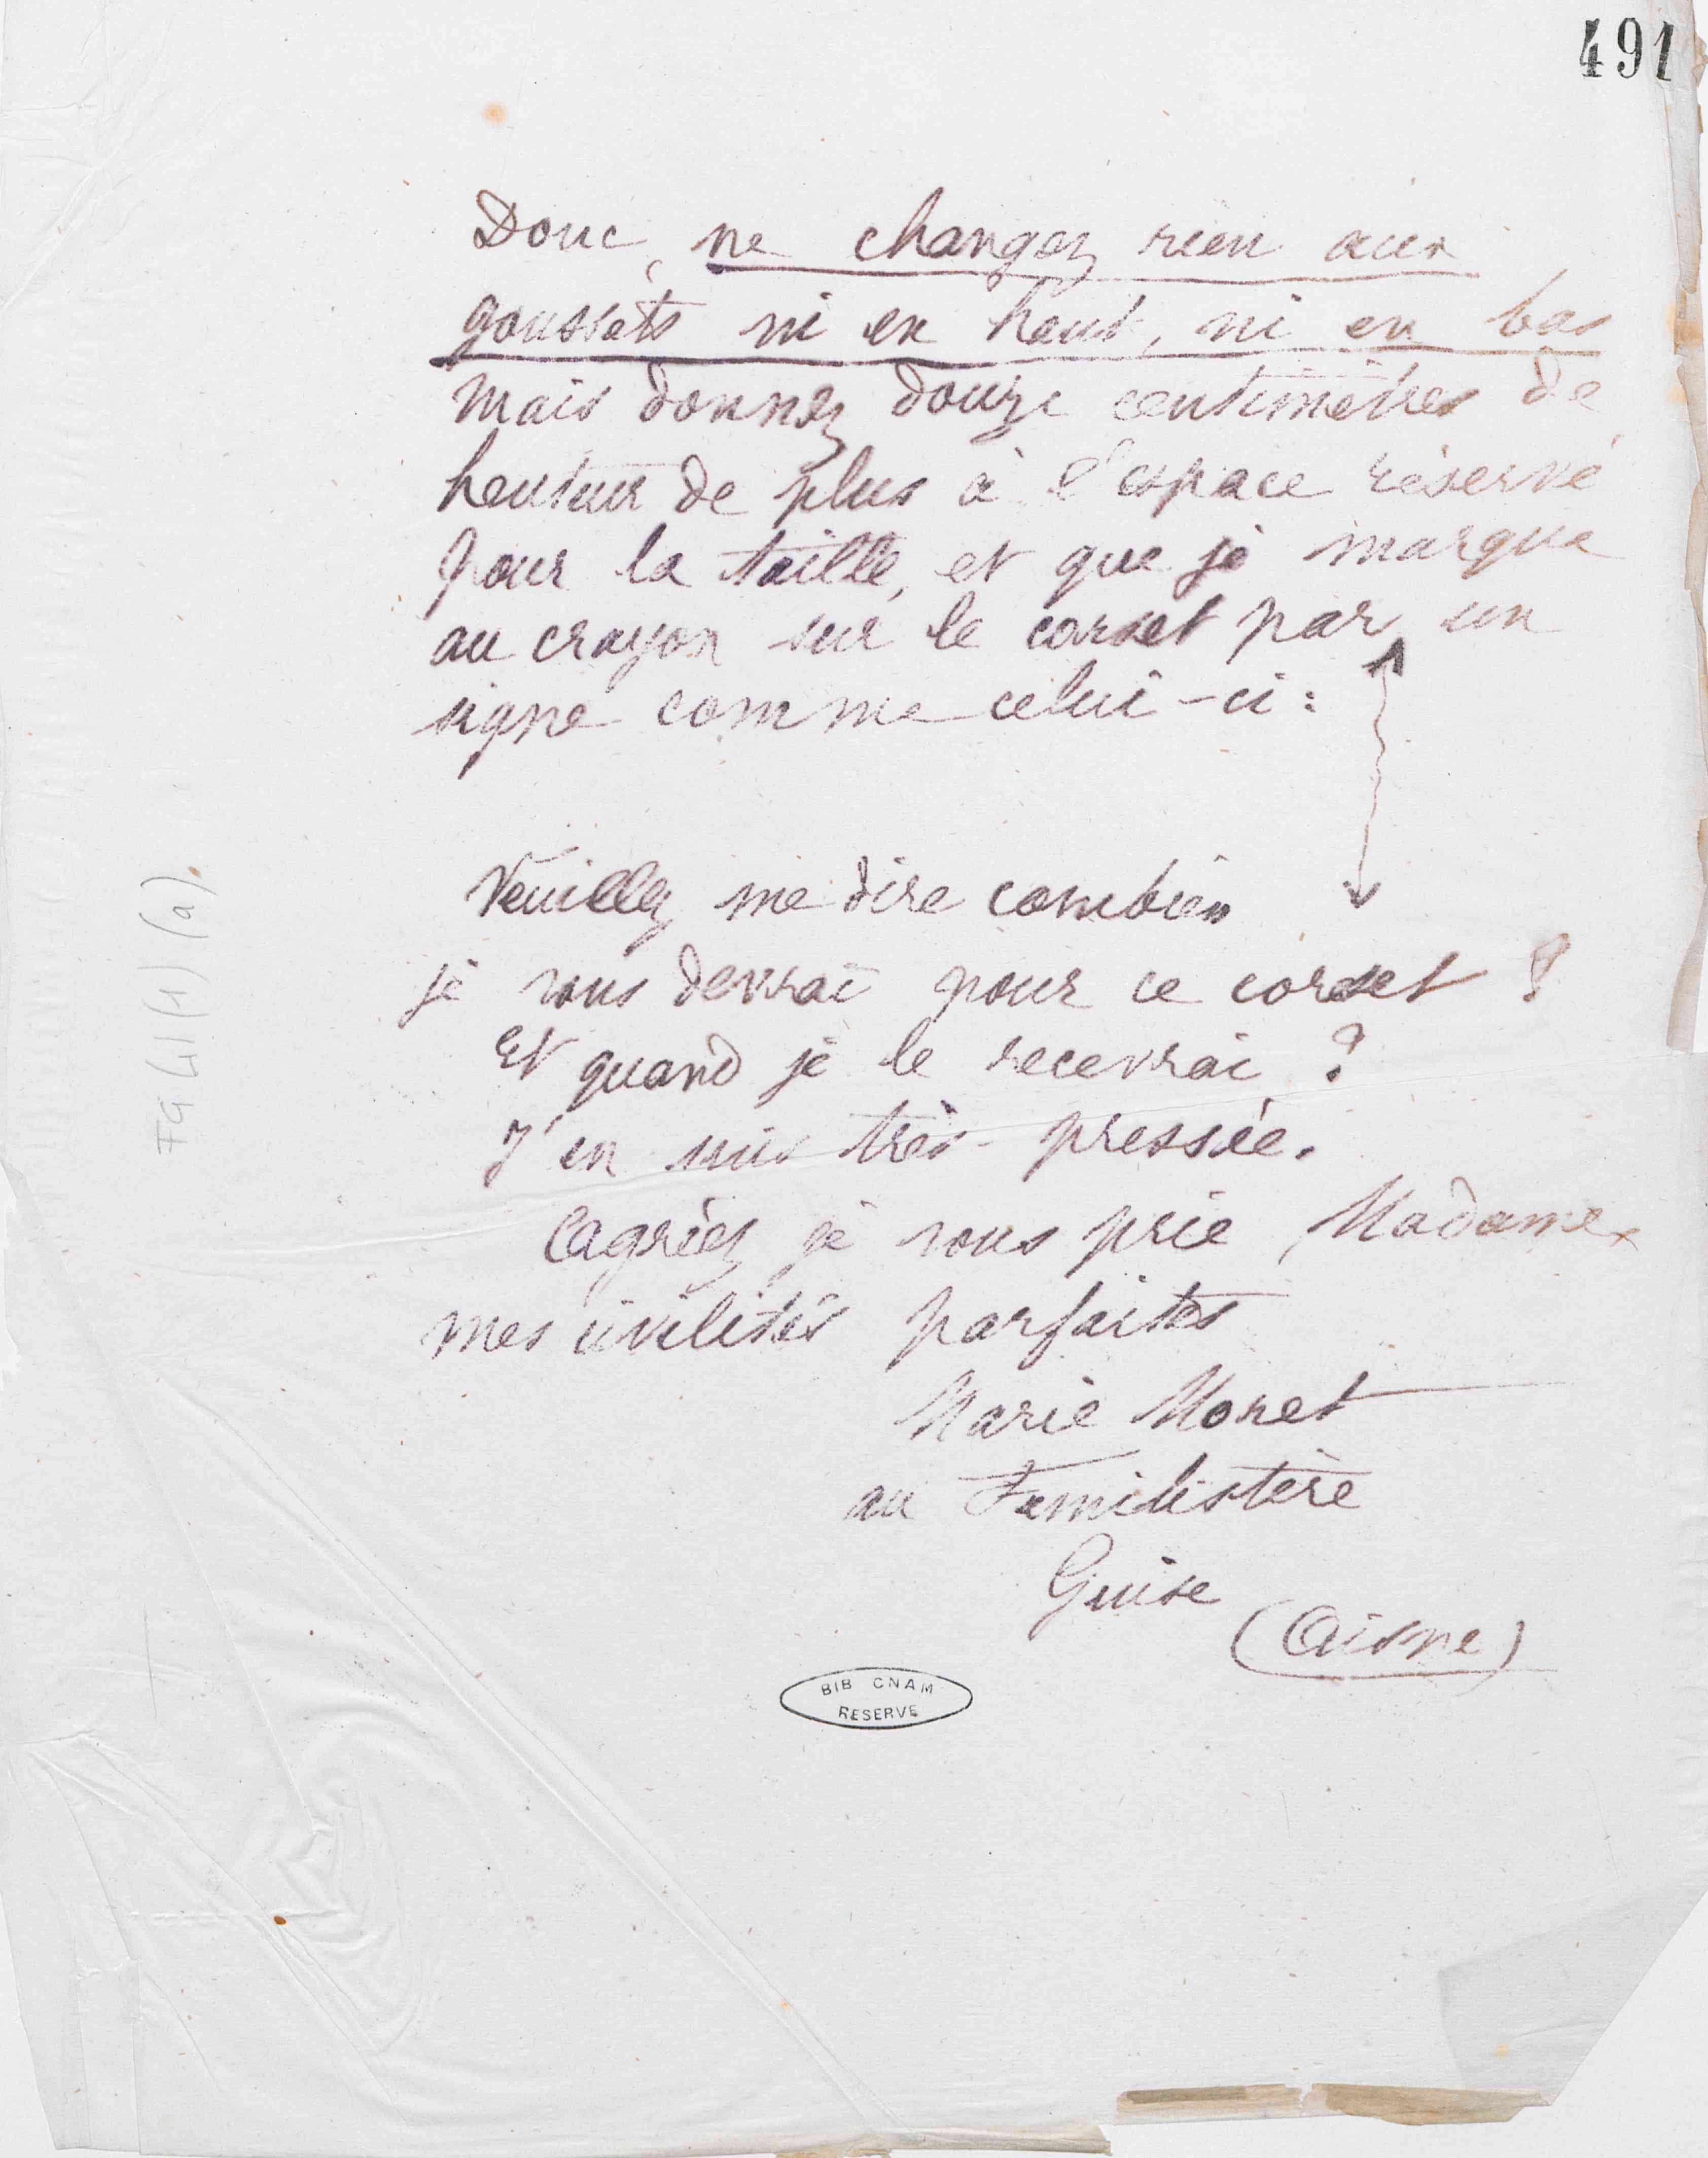 491
Donc, ne changez rien aux
goussets ni en haut, ni en bas
mais donnez douze centimètres de
hauteur de plus à l'espace réservé
pour la taille, et que je marque
au crayon sur le corset par un
signe comme celui-ci :
Veuillez me dire combien
je vous devrai pour ce corset ?
Et quand je le recevrai ?
J'en suis très pressée.
Agréez je vous prie, Madame,
mes civilités parfaites
Marie Moret
au Familistère
Guise
(Aisne)
BIB CNAM
RESERVE
FG 41 (1) (a)